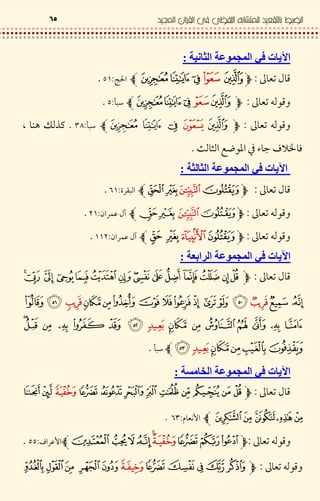 الضبط بالتقعيد للمتشابه اللفظي في القرآن المجيد ٦٥
الآيات في المجموعة الثانية :
قال تعالى : ﴿ وَالَّذِينَ سَعَوْا فِي آيَاتِنَا مُعَاجِزِينَ ﴾ الحج:٥١ .
وقوله تعالى : ﴿ وَالَّذِينَ سَعَوْ فِي آيَاتِنَا مُعَاجِزِينَ ﴾ سبأ:٥ .
وقوله تعالى : ﴿ وَالَّذِينَ يَسْعَوْنَ فِي آيَاتِنَا مُعَاجِزِينَ ﴾ سبأ:٣٨ . كذلك هنا ،
فالخلاف جاء في الموضع الثالث .
الآيات في المجموعة الثالثة :
قال تعالى : ﴿ وَيَقْتُلُونَ النَّبِيِّينَ بِغَيْرِ الْحَقِّ ﴾ البقرة:٦١ .
وقوله تعالى : ﴿ وَيَقْتُلُونَ النَّبِيِّينَ بِغَيْرِ حَقٍّ ﴾ آل عمران:٢١ .
وقوله تعالى : ﴿ وَيَقْتُلُونَ الْأَنْبِيَاءَ بِغَيْرِ حَقٍّ ﴾ آل عمران:١١٢ .
الآيات في المجموعة الرابعة :
قال تعالى : ﴿ قُلْ إِنْ ضَلَلْتُ فَإِنَّمَا أَضِلُّ عَلَى نَفْسِي وَإِنِ اهْتَدَيْتُ فَبِمَا يُوحِي إِلَيَّ رَبِّي
إِنَّهُ سَمِيعٌ قَرِيبٌ ٥٠ وَلَوْ تَرَى إِذْ فَزِعُوا فَلَا فَوْتَ وَأُخِذُوا مِنْ مَكَانٍ قَرِيبٍ ٥١ وَقَالُوا
آمَنَّا بِهِ وَأَنَّى لَهُمُ التَّنَاوُشُ مِنْ مَكَانٍ بَعِيدٍ ٥٢ وَقَدْ كَفَرُوا بِهِ مِنْ قَبْلُ
وَيَقْذِفُونَ بِالْغَيْبِ مِنْ مَكَانٍ بَعِيدٍ ٥٣ ﴾ سبأ .
الآيات في المجموعة الخامسة :
قال تعالى : ﴿ قُلْ مَنْ يُنَجِّيكُمْ مِنْ ظُلُمَاتِ الْبَرِّ وَالْبَحْرِ تَدْعُونَهُ تَضَرُّعًا وَخُفْيَةً لَئِنْ أَنْجَانَا
مِنْ هَذِهِ لَنَكُونَنَّ مِنَ الشَّاكِرِينَ ﴾ الأنعام:٦٣ .
وقوله تعالى : ﴿ ادْعُوا رَبَّكُمْ تَضَرُّعًا وَخُفْيَةً إِنَّهُ لَا يُحِبُّ الْمُعْتَدِينَ ﴾ الأعراف:٥٥ .
وقوله تعالى : ﴿ وَاذْكُرْ رَبَّكَ فِي نَفْسِكَ تَضَرُّعًا وَخِيفَةً وَدُونَ الْجَهْرِ مِنَ الْقَوْلِ بِالْغُدُوِّ